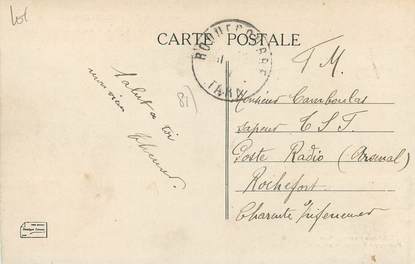 lot
CARTE POSTALE
ROQUECOURBE
TARN
F. M.
81
Salut a toi
mon vieux
Monsieur Camboulas
sapeur T.S.F.
Poste Radio (Arsenal)
Rochefort
Charente Inférieure